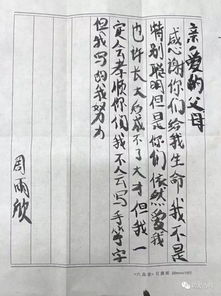 亲爱的父母
感谢你们给我生命，我不是
特别聪明但是你们依然爱我
也许长大后成不了大才但我一
定会孝顺你们我不会写手等字
但我写的我努力
周雨欣